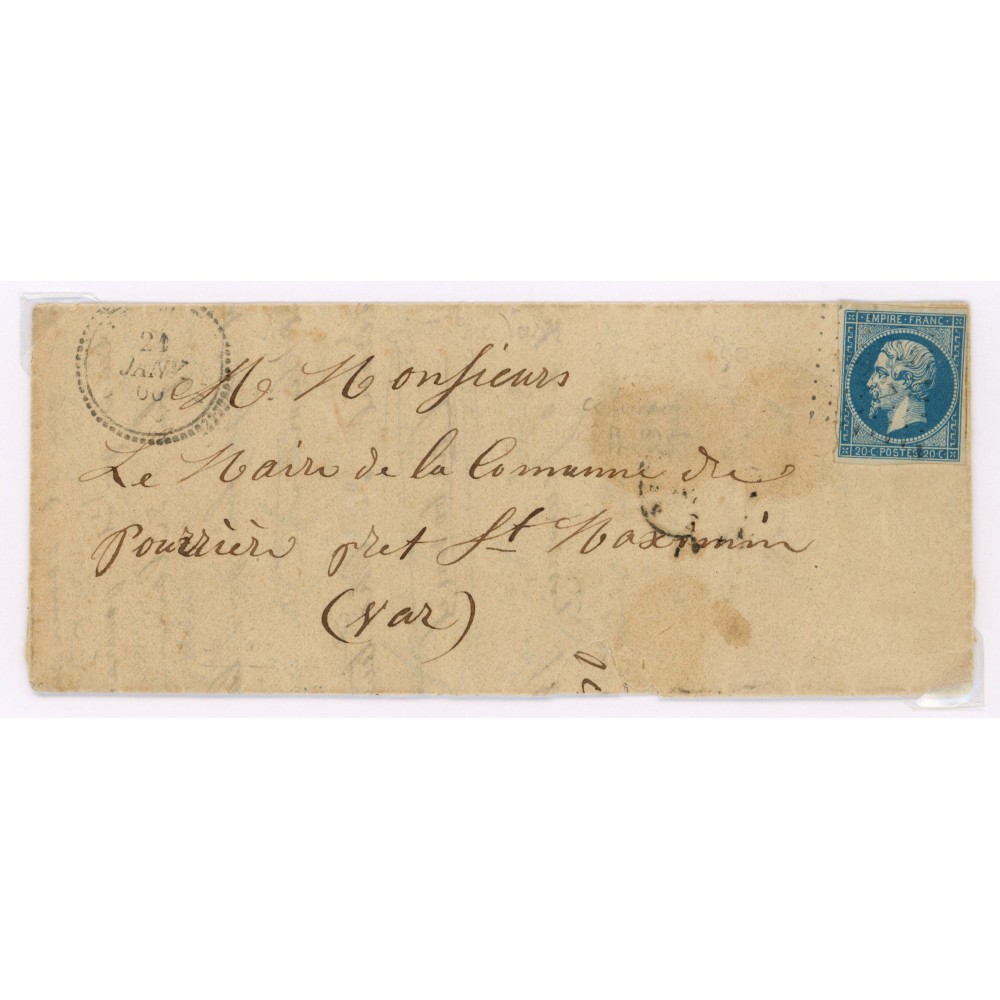 21
JANV
60
EMPIRE · FRANC ·
20 · C POSTES · 20 · C
M. Monsieurs
Le Maire de la Comunne de
Pourrière pret St Maxomin
(Var)